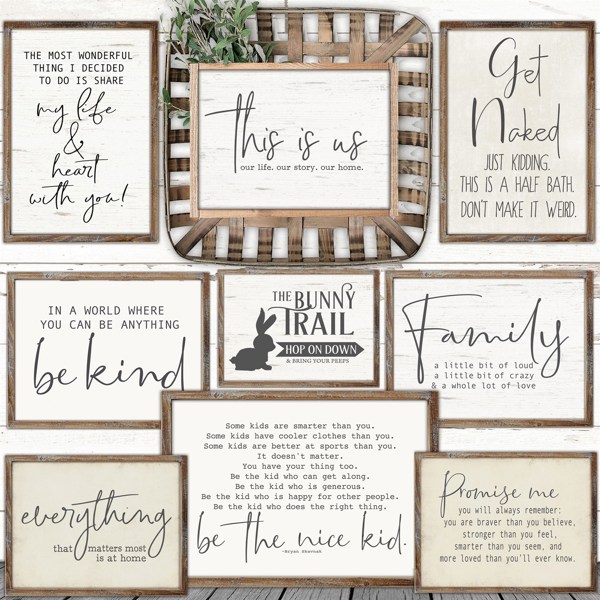 THE MOST WONDERFUL
THING I DECIDED
TO DO IS SHARE
my life
&
heart
with you!
this is us
our life. our story. our home.
Get
Naked
JUST KIDDING.
THIS IS A HALF BATH.
DON'T MAKE IT WEIRD.
IN A WORLD WHERE
YOU CAN BE ANYTHING
be kind
THE BUNNY
TRAIL
HOP ON DOWN
& BRING YOUR PEEPS
Family
a little bit of loud
a little bit of crazy
& a whole lot of love
everything
that matters most
is at home
Some kids are smarter than you.
Some kids have cooler clothes than you.
Some kids are better at sports than you.
It doesn't matter.
You have your thing too.
Be the kid who can get along.
Be the kid who is generous.
Be the kid who is happy for other people.
Be the kid who does the right thing.
be the nice kid.
-Bryan Skavnak
Promise me
you will always remember:
you are braver than you believe,
stronger than you feel,
smarter than you seem, and
more loved than you'll ever know.